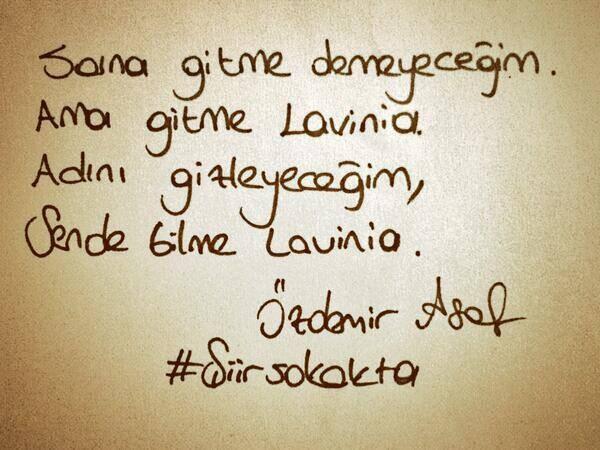 Sana gitme demeyeceğim.
Ama gitme Lavinia.
Adını gizleyeceğim,
Sende bilme Lavinia.
Özdemir Asaf
#Şiirsokakta